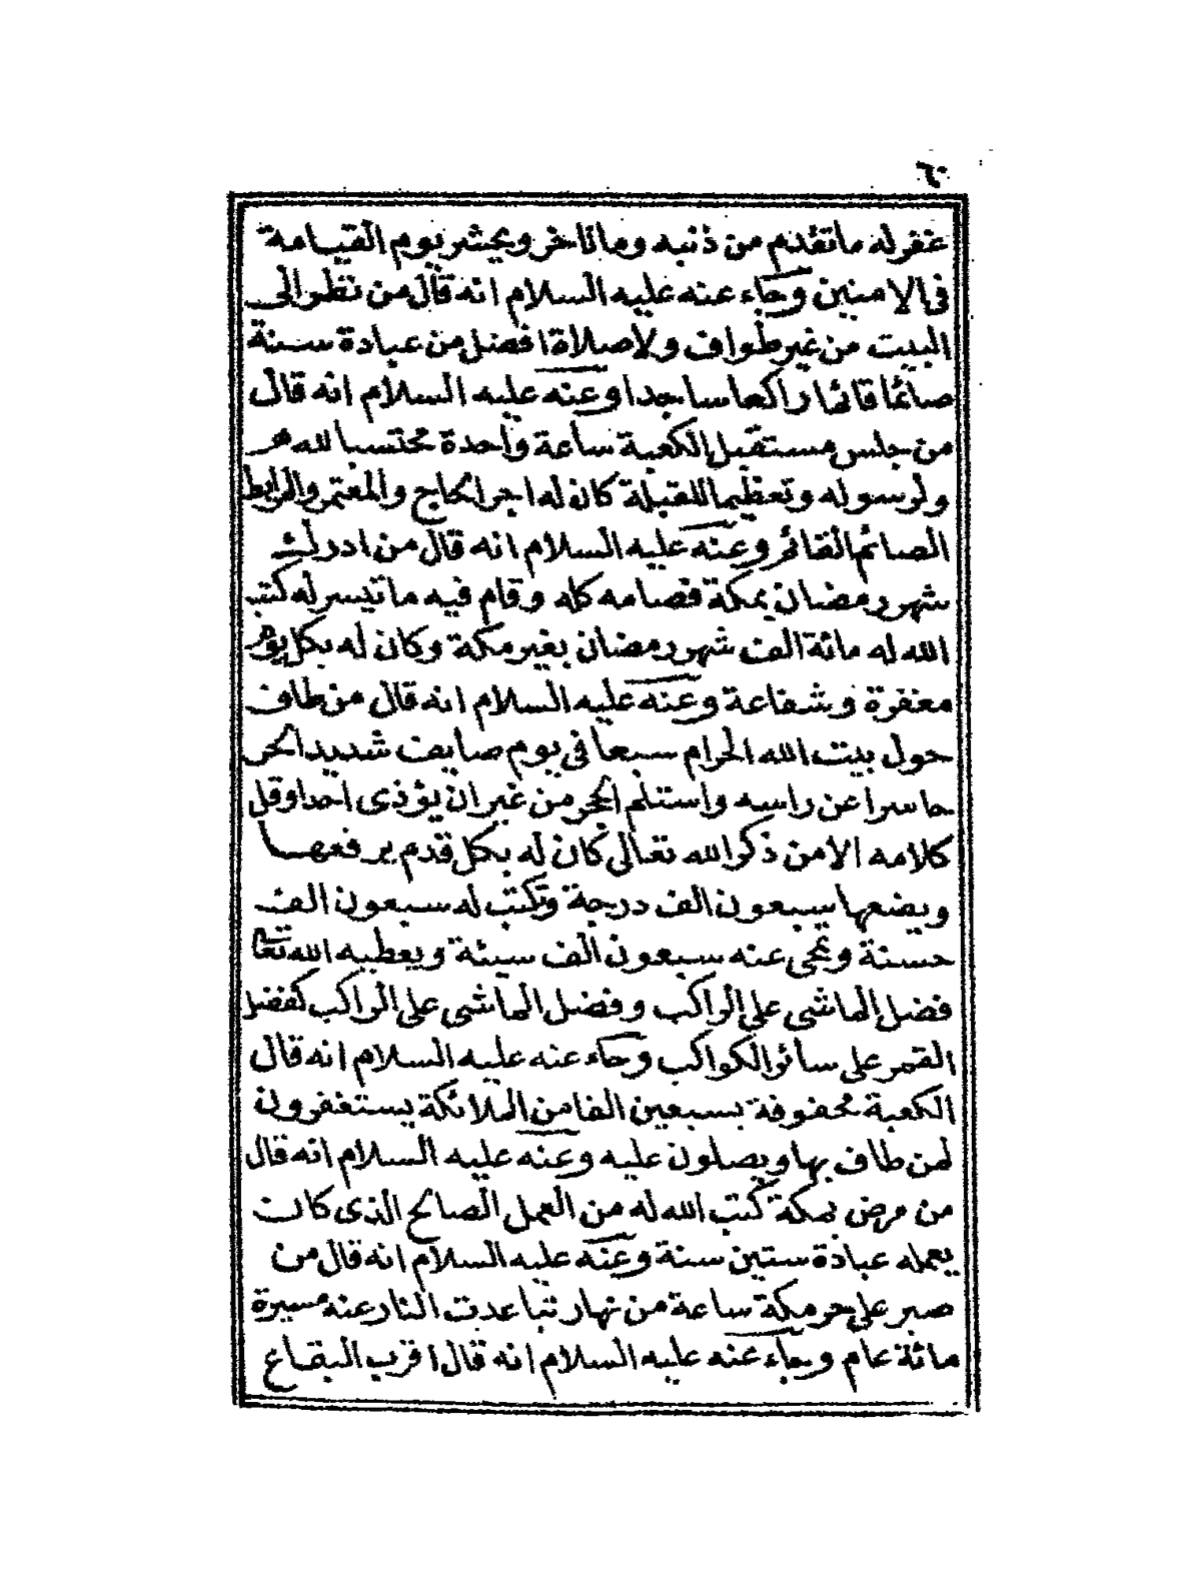 ٦
غفر له ما تقدم من ذنبه وما تاخر ويحشر يوم القيامة
فى الامنين وجاء عنه عليه السلام انه قال من نظر الى
البيت من غير طواف ولا صلاة افضل من عبادة سنة
صائما قائما راكعا ساجدا وعنه عليه السلام انه قال
من جلس مستقبل الكعبة ساعة واحدة محتسبا لله
ولرسوله وتعظيما للقبلة كان له اجر الحاج والمعتمر والمرابط
الصائم القائم وعنه عليه السلام انه قال من ادرك
شهر رمضان بمكة فصامه كله وقام فيه ما تيسر له كتب
الله له مائة الف شهر رمضان بغير مكة وكان له بكل يوم
مغفرة وشفاعة وعنه عليه السلام انه قال من طاف
حول بيت الله الحرام سبعا فى يوم صايف شديد الحر
حاسرا عن راسه واستلم الحجر من غير ان يؤذى احدا وقل
كلامه الا من ذكر الله تعالى كان له بكل قدم يرفعها
ويضعها سبعون الف درجة وتكتب له سبعون الف
حسنة وتمحى عنه سبعون الف سيئة ويعطيه الله تعا
فضل الماشى على الراكب وفضل الماشى على الراكب كفضل
القمر على سائر الكواكب وجاء عنه عليه السلام انه قال
الكعبة محفوفة بسبعين الفا من الملائكة يستغفرون
لمن طاف بها ويصلون عليه وعنه عليه السلام انه قال
من مرض بمكة كتب الله له من العمل الصالح الذى كان
يعمله عبادة ستين سنة وعنه عليه السلام انه قال من
صبر على حر مكة ساعة من نهار تباعدت النار عنه مسيرة
مائة عام وجاء عنه عليه السلام انه قال اقرب البقاع